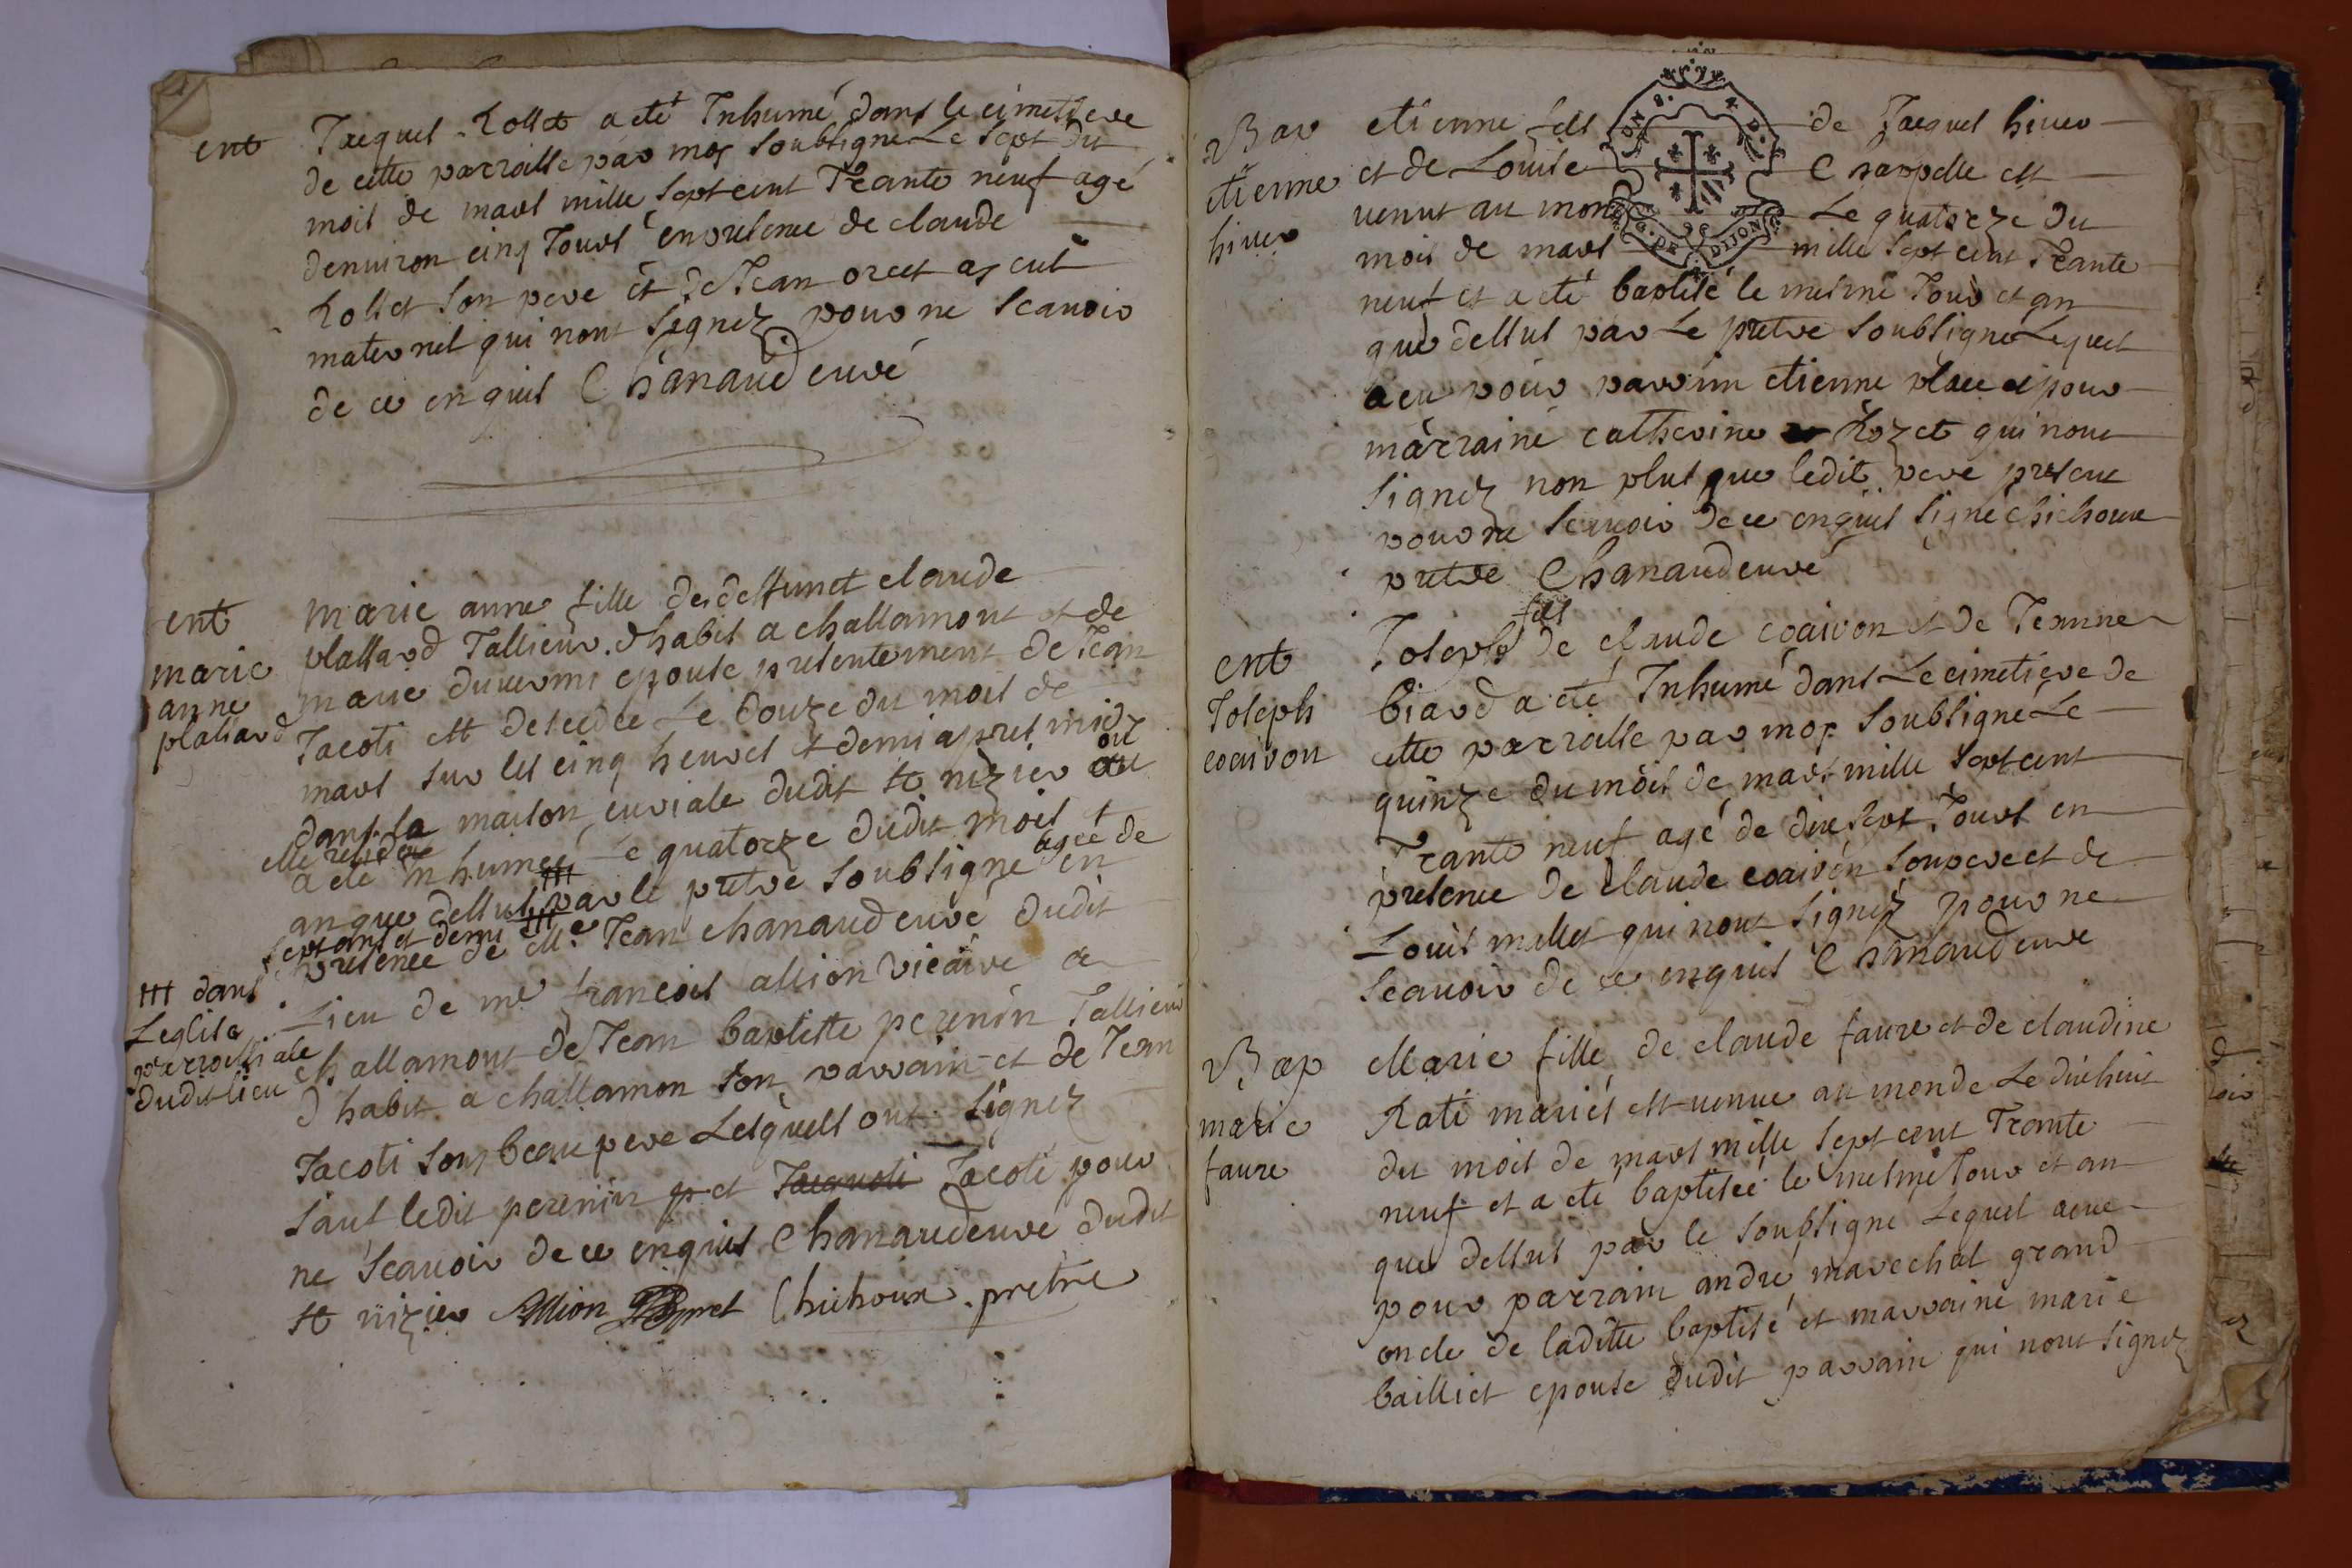 ent
Jacques Rollet a eté Inhumé dans le cimettiere
de cette parroisse par moy soubsigné Le sept du
mois de mars mille sept cent Trante neuf agé
denuiron cinq Jours en presence de claude
Rollet son pere et de Jean oreet ayeul
maternel qui nont signez pour ne scauoir
de ce enquis Chanaud curé
ent
marie
anne
platiard
marie anne fille de deffunct claude
platiard Tallieur dhabis a challamont et de
marie duuermi epouse presentement de Jean
Jacoti est decedée Le douze du mois de
mars sur les cinq heures et demi apres midy
dans la maison curiale dudit st nizier ou
elle residoit
a eté inhumée Le quatorze dudit mois et
an que dessus par le pretre soubsigné agée de
sept ans et demi en
presence de Me Jean chanaud curé dudit
Lieu de me francois allion vicaire a
challamont de Jean baptiste perenin Tallieur
dhabit a challamon son parrain et de Jean
Jacoti son beau pere Lesquels ont signez
sauf ledit perenin et Jacoti pour
ne scauoir de ce enquis Chanaud curé dudit
st nizier Allion Chichoux pretre
ttt dans
Leglise
parroissiale
dudit lieu
Bap
etienne
hiuer
etienne fils de Jacques hiuer
et de Louise Chappelle est
venut au monde Le quatorze du
mois de mars mille sept cent Trante
neuf et a eté baptisé le mesme Jour et an
que dessus par Le pretre soubsigné Lequel
a eu pour parrin etienne place et pour
marraine catherine Rozet qui nont
signez non plus que ledit pere present
pour ne scauoir de ce enquis signé chichoux
pretre Chanaud curé
ent
Joseph
coairon
Joseph fils de claude coairon et de Jeanne
biard a eté Inhumé dans Le cimetiere de
cette parroisse par moy soubsigné Le
quinze du mois de mars mille sept cent
Trante neuf agé de dix sept Jours en
presence de claude coairon son pere et de
Louis millet qui nont signez pour ne
scauoir de ce enquis Chanaud curé
Bap
marie
faure
Marie fille de claude faure et de claudine
Rati mariés est venue au monde Le dixhuit
du mois de mars mille sept cent Trante
neuf et a eté baptisée le mesme Jour et an
que dessus par le soubsigné Lequel a eue
pour parrain andré marechal grand
oncle de laditte baptisé et marraine marie
bailliet epouse dudit parrain qui nont signez